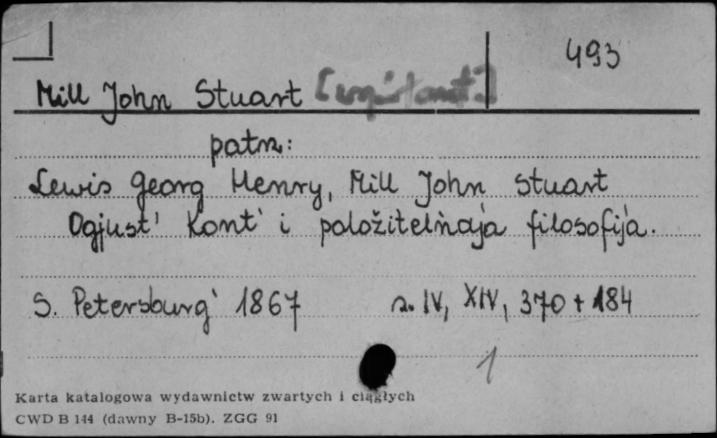 493
Mill John Stuart
patrz:
Lewis Georg Henry, Mill John Stuart
Ogjust' Kont' i položitelnaja filosofija.
S. Petersburg' 1867 s. IV, XIV, 370 + 184
1
Karta katalogowa wydawnictw zwartych i ciągłych
CWD B 144 (dawny B-15b). ZGG 91